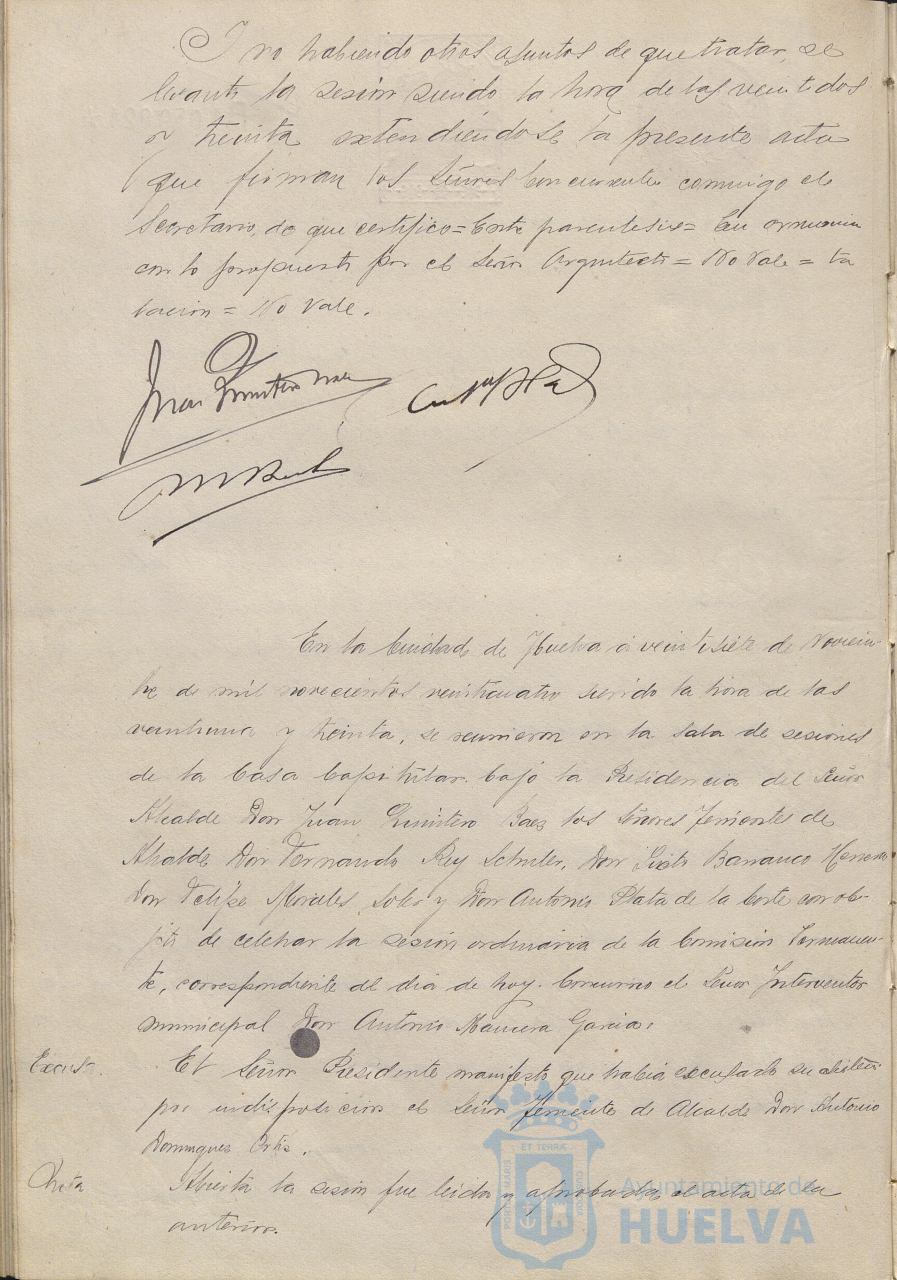 Y no habiendo otros asuntos de que tratar, se
levantó la sesión siendo la hora de las veintidos
y treinta extendiéndose la presente acta
que firman los Señores concurrentes conmigo el
Secretario, de que certifico = Entre parentesis = En armonia
con lo propuesto por el Señor Arquitecto = No Vale = ta
tacion = No Vale.
Juan Quintero Baez
En la Ciudad de Huelva á veintisiete de Noviem-
bre de mil novecientos veinticuatro siendo la hora de las
veintiuna y treinta, se reunieron en la sala de sesiones
de la Casa Capitular bajo la Presidencia del Señor
Alcalde Don Juan Quintero Baez los Señores Tenientes de
Alcalde Don Fernando Rey Don Sixto Barranco Herrera
Don Felipe Morales Soler y Don Antonio Plata de la Corte con ob-
jeto de celebrar la sesión ordinaria de la Comisión Permanen-
te, correspondiente al dia de hoy. Concurrió el Señor Interventor
municipal Don Antonio Garcia.
Excusa. El Señor Presidente manifestó que habia excusado su asisten
por indisposicion el Señor Teniente de Alcalde Don Antonio
Dominguez Ortiz.
Acta Abierta la sesión fue leida y aprobada el acta de la
anterior.
PORTUS MARIS
ET TERRÆ
CUSTODIA
Ayuntamiento de
HUELVA